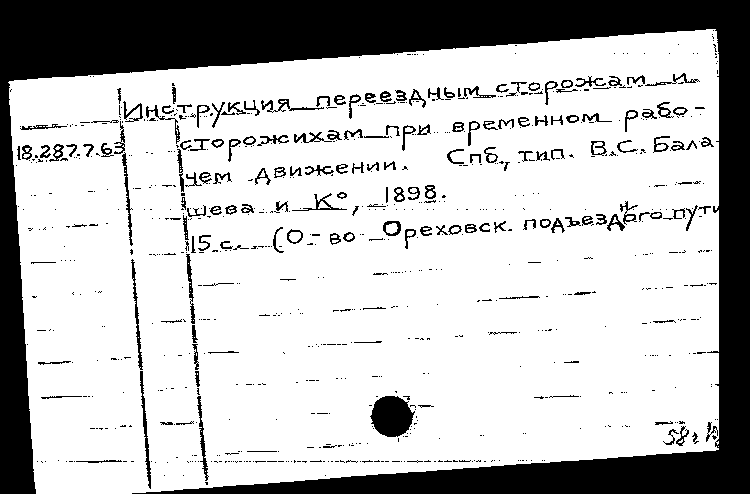 Инструкция переездным сторожам и
18.287.7.63 сторожихам при временном рабо-
чем движении. Спб., тип. В.С. Бала-
шева и К°, 1898.
15 с. (О-во Ореховск. подъездного пути
58 г.